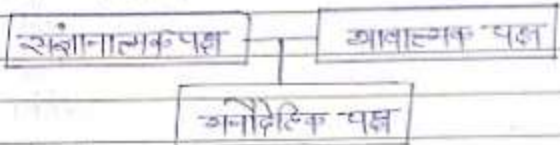 संज्ञानात्मक पक्ष भावात्मक पक्ष
मनोदैहिक पक्ष